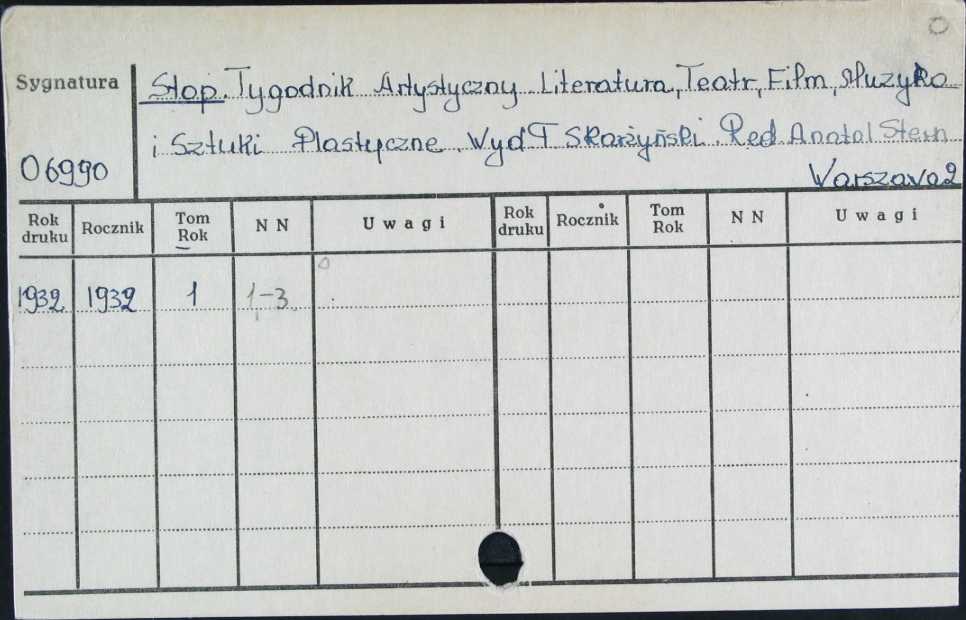 Sygnatura
06990
Stop. Tygodnik Artystyczny Literatura, Teatr, Film, Muzyka
i Sztuki Plastyczne. Wyd T Skarżyński. Red Anatol Stern
Warszawa 2
Rok druku Rocznik Tom Rok N N Uwagi Rok druku Rocznik Tom Rok N N Uwagi
1932 1932 1 1-3